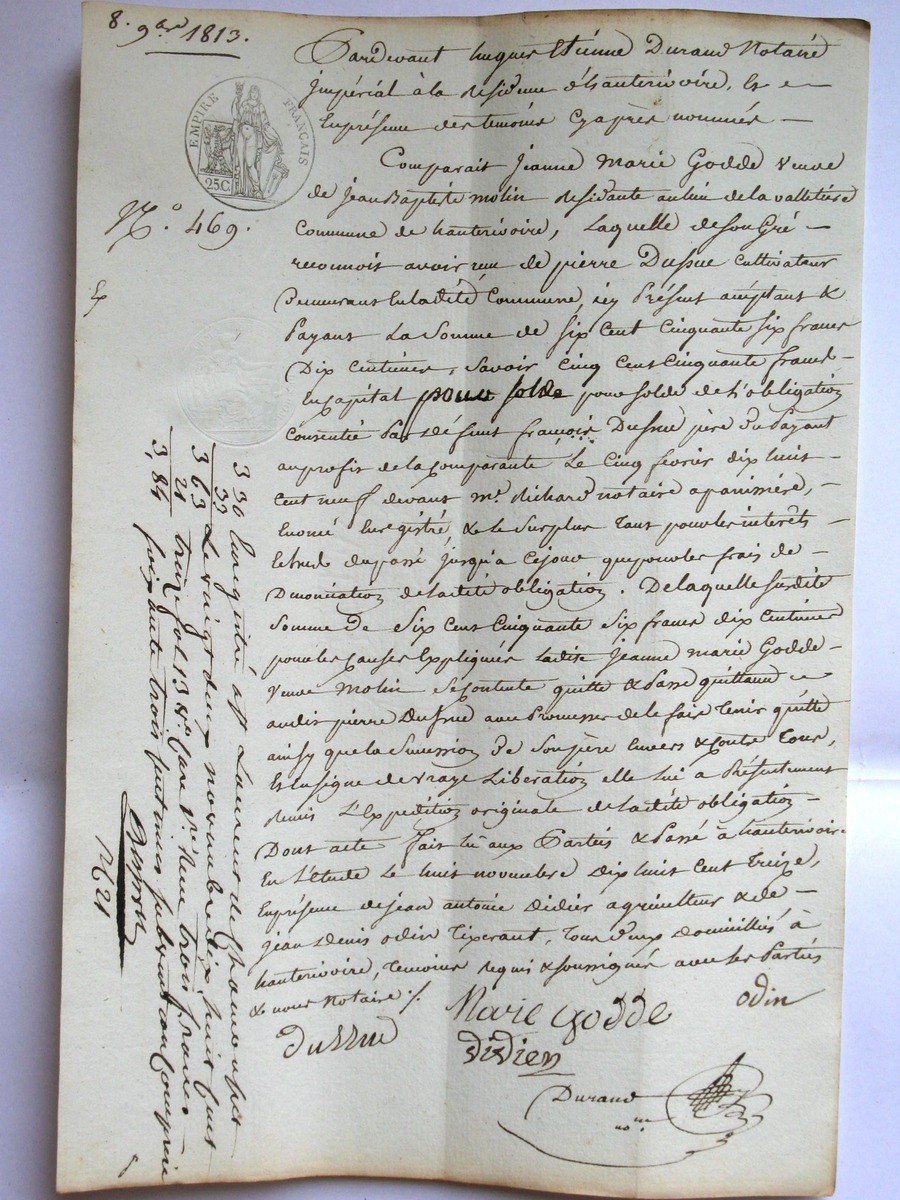 8. 9bre 1813.
EMPIRE FRANÇAIS
25 C.
N.º 469.
Pardevant hugues Etienne Durand Notaire
Impérial à la résidence d'hauterivoire, &
En présence des temoins Cyaprès nommés —
Comparait Jeanne Marie Godde Veuve
de Jean Baptiste molin residante au lieu de la valletière
Commune de hauterivoire, Laquelle de son Gré —
reconnoit avoir reçu de pierre Dussuc Cultivateur
Demeurant en ladite Commune, icy Présent acceptant &
Payant La Somme de Six Cent Cinquante Six francs
Dix Centimes, Savoir Cinq Cent Cinquante francs
En Capital pour solde pour solde de l'obligation
Consentie Par défunt françois Dussuc père du Payant
au profit de la Comparante Le Cinq février dix huit
Cent neuf devant Me. Richard notaire a panissière, —
Enregistré & le Surplus tant pour les interêts
du passé jusqu'à Cejour que pour les frais de —
De laditte obligation. De laquelle Susdite
Somme de Six Cent Cinquante Six francs dix Centimes
pour les Causes Expliquées ladite Jeanne marie Godde
Veuve Molin Se Contente quitte & Passe quittance
audit pierre Dussuc avec Promesse de le faire Tenir quitte
ainsy que la Succession de Son père Envers & Contre Tous,
Et en signe de vraye Libération elle lui a Présentement
Remis L'Expédition originale de ladite obligation —
Dont acte fait lu aux Parties & Passé à hauterivoire
En L'étude Le huit novembre Dix huit Cent Treize,
En présence de jean antoine Didier agriculteur & de —
Jean Denis odin Tixerant, Tous deux Domiciliés à
hauterivoire, Temoins Requis & Soussignés avec les Parties
& nous Notaire ./.
Marie Godde
odin
dussuc
didier
Durand
nore
3 30
33
3 63
21
3, 84
Enregistré à St Laurent de Chamousset
Le vingt deux novembre dix huit Cent
treize fol 13
Reçu trois francs
quatre